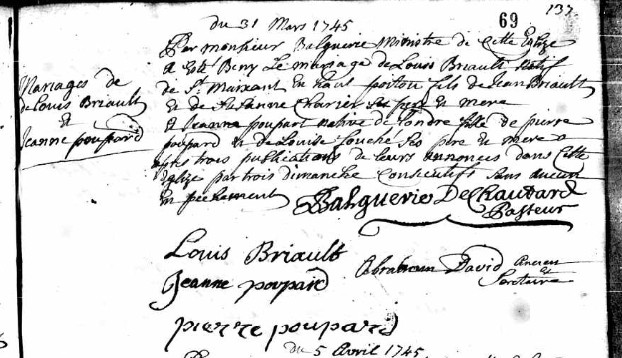 137
69
du 31 Mars 1745
Mariages de
de Louis Briault
et
Jeanne poupard
Par monsieur Balguerie Ministre de Cette Eglize
a Esté Beny Le mariage de Louis Briault Natif
de St Maixant en haut poitou fils de Jean Briault
et de Suzanne Charier Ses pere et mere
et Jeanne poupart native de Londre fille de pierre
poupard et de Louise Souché Ses pere et mere
apres trois publications de leurs annonces dans Cette
Eglize par trois dimanche Consecutifs Sans aucun
Empechement
Balguerie DeChautard
Pasteur
Louis Briault
Jeanne poupard
Abraham David Ancien
et
Secretaire
pierre poupard
du 5 Avril 1745